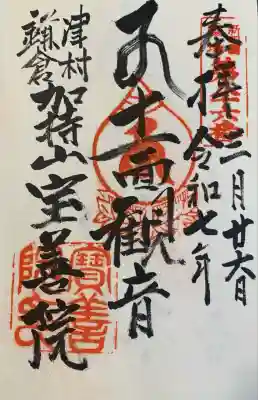 奉拝
令和七年
二月廿六日
十一面観音
津村
鎌倉
加持山宝善院
寶善院印